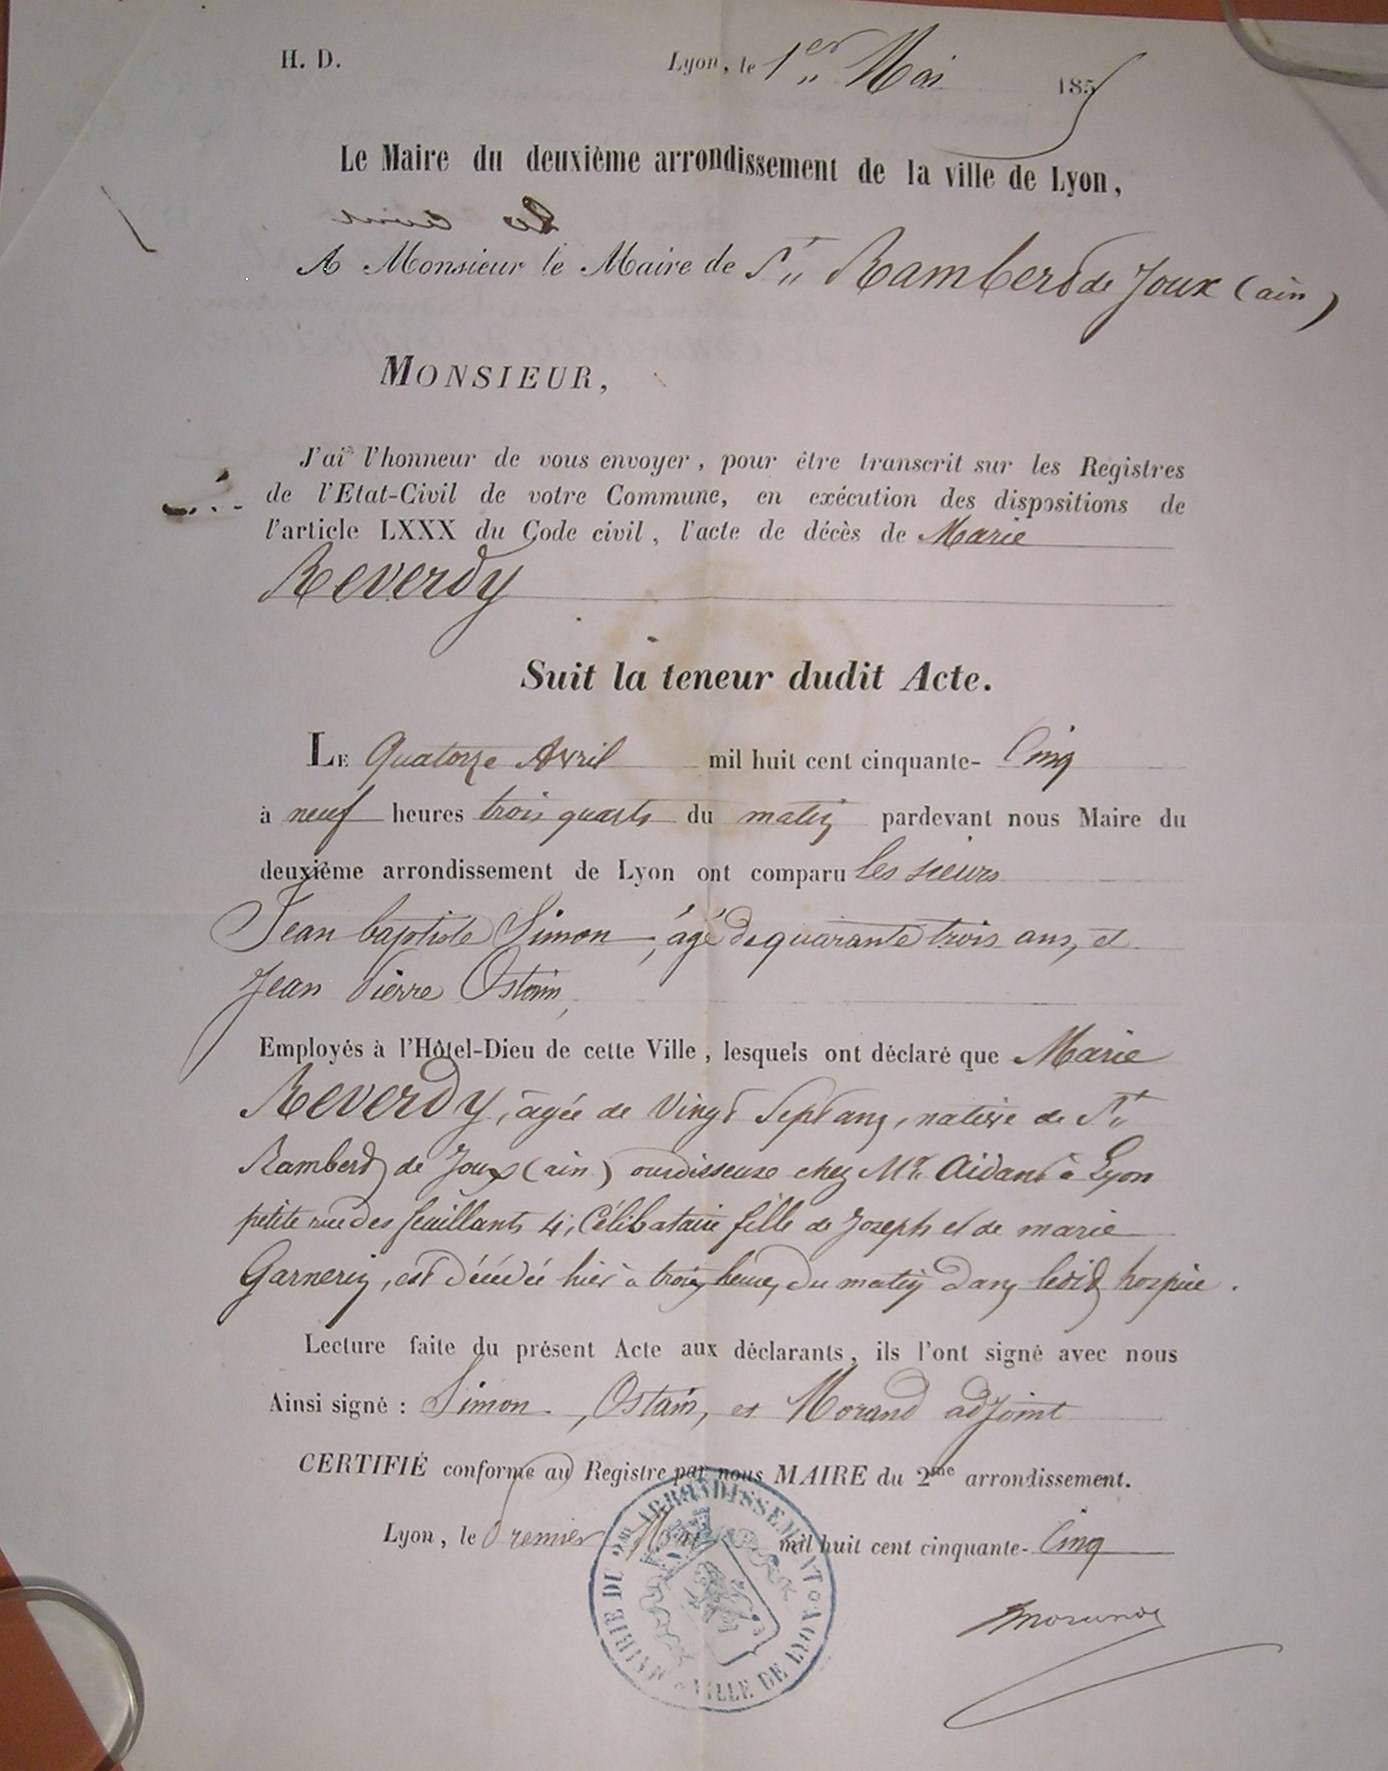 H. D.
Lyon, le 1er Mai 1855
Le Maire du deuxième arrondissement de la ville de Lyon,
A Monsieur le Maire de St Rambert de Joux (ain)
MONSIEUR,
J'ai l'honneur de vous envoyer, pour être transcrit sur les Registres
de l'Etat-Civil de votre Commune, en exécution des dispositions de
l'article LXXX du Code civil, l'acte de décès de Marie
Reverdy
Suit la teneur dudit Acte.
LE Quatorze Avril mil huit cent cinquante- Cinq
à neuf heures trois quarts du matin pardevant nous Maire du
deuxième arrondissement de Lyon ont comparu les sieurs
Jean baptiste Simon, âgé de quarante trois ans, et
Jean Pierre
Employés à l'Hôtel-Dieu de cette Ville, lesquels ont déclaré que Marie
Reverdy, âgée de Vingt Sept ans, native de St
Rambert de Joux (ain) ourdisseuse chez Mr. à Lyon
petite rue des feuillants 4, Célibataire fille de Joseph et de marie
Garnerin, est décédée hier à trois heures du matin dans ledit hospice.
Lecture faite du présent Acte aux déclarants, ils l'ont signé avec nous
Ainsi signé : Simon, et Morand adjoint
CERTIFIÉ conforme au Registre par nous MAIRE du 2me arrondissement.
Lyon, le Premier Mai mil huit cent cinquante- Cinq
MAIRIE DU 2ME ARRONDISSEMENT
VILLE DE LYON
Morand